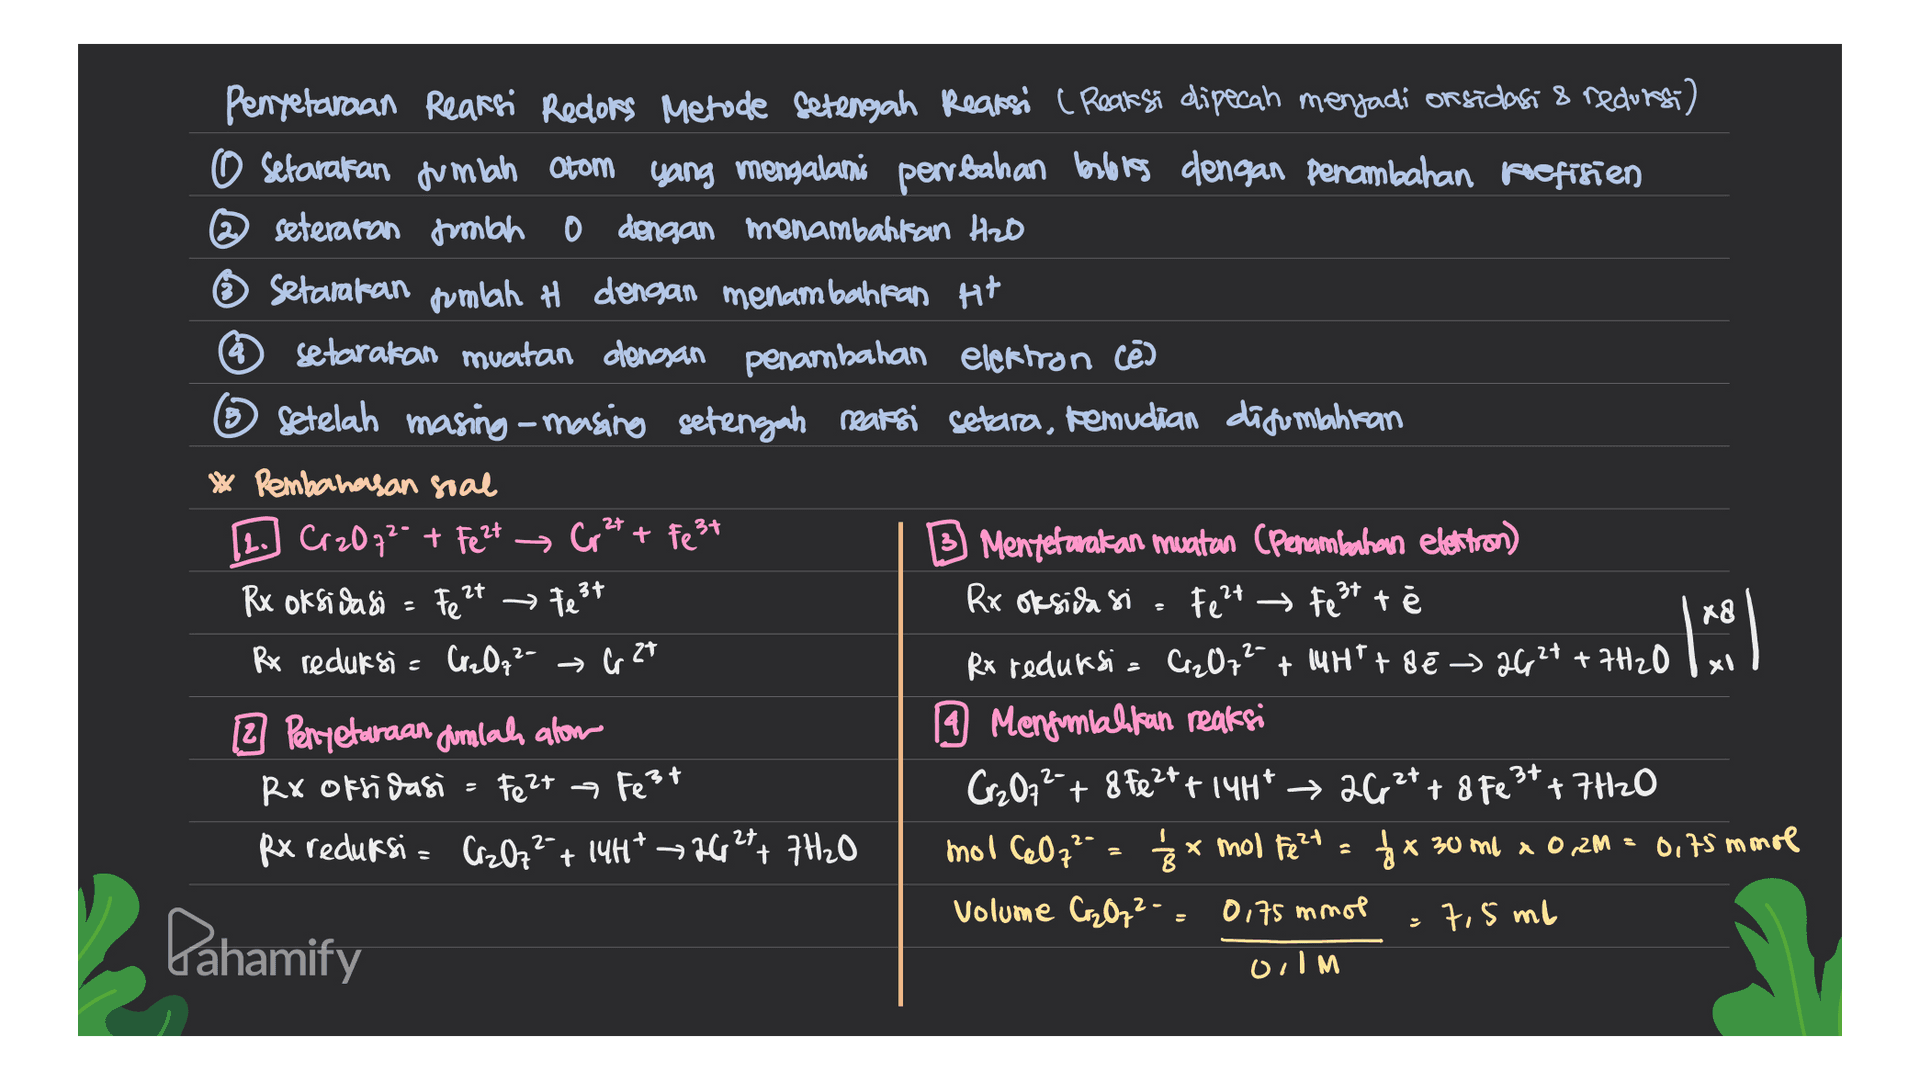 Penyetaraan Reaksi Redoks Metode Setengah Reaksi (Reaksi dipecah menjadi oksidasi & reduksi)
① Setarakan jumlah atom yang mengalami perubahan biloks dengan Penambahan koefisien
② setarakan jumlah O dengan menambahkan H₂O
③ Setarakan jumlah H dengan menambahkan H⁺
④ setarakan muatan dengan penambahan elektron (ē)
⑤ Setelah masing-masing setengah reaksi setara, kemudian dijumlahkan
※ Pembahasan soal
1. Cr₂O₇²⁻ + Fe²⁺ → Cr²⁺ + Fe³⁺
Rx oksidasi = Fe²⁺ → Fe³⁺
Rx reduksi = Cr₂O₇²⁻ → Cr²⁺
2 Penyetaraan jumlah atom
Rx oksidasi = Fe²⁺ → Fe³⁺
Rx reduksi = Cr₂O₇²⁻ + 14H⁺ → 2Cr²⁺ + 7H₂O
3 Menyetarakan muatan (Penambahan elektron)
Rx oksidasi = Fe²⁺ → Fe³⁺ + ē | x8 |
Rx reduksi = Cr₂O₇²⁻ + 14H⁺ + 8ē → 2Cr²⁺ + 7H₂O | x1 |
4 Menjumlahkan reaksi
Cr₂O₇²⁻ + 8Fe²⁺ + 14H⁺ → 2Cr²⁺ + 8Fe³⁺ + 7H₂O
mol CeO₇²⁻ = 1/8 x mol Fe²⁺ = 1/8 x 30 mL x 0,2M = 0,75 mmol
Volume Cr₂O₇²⁻ = 0,75 mmol / 0,1 M = 7,5 mL
Pahamify